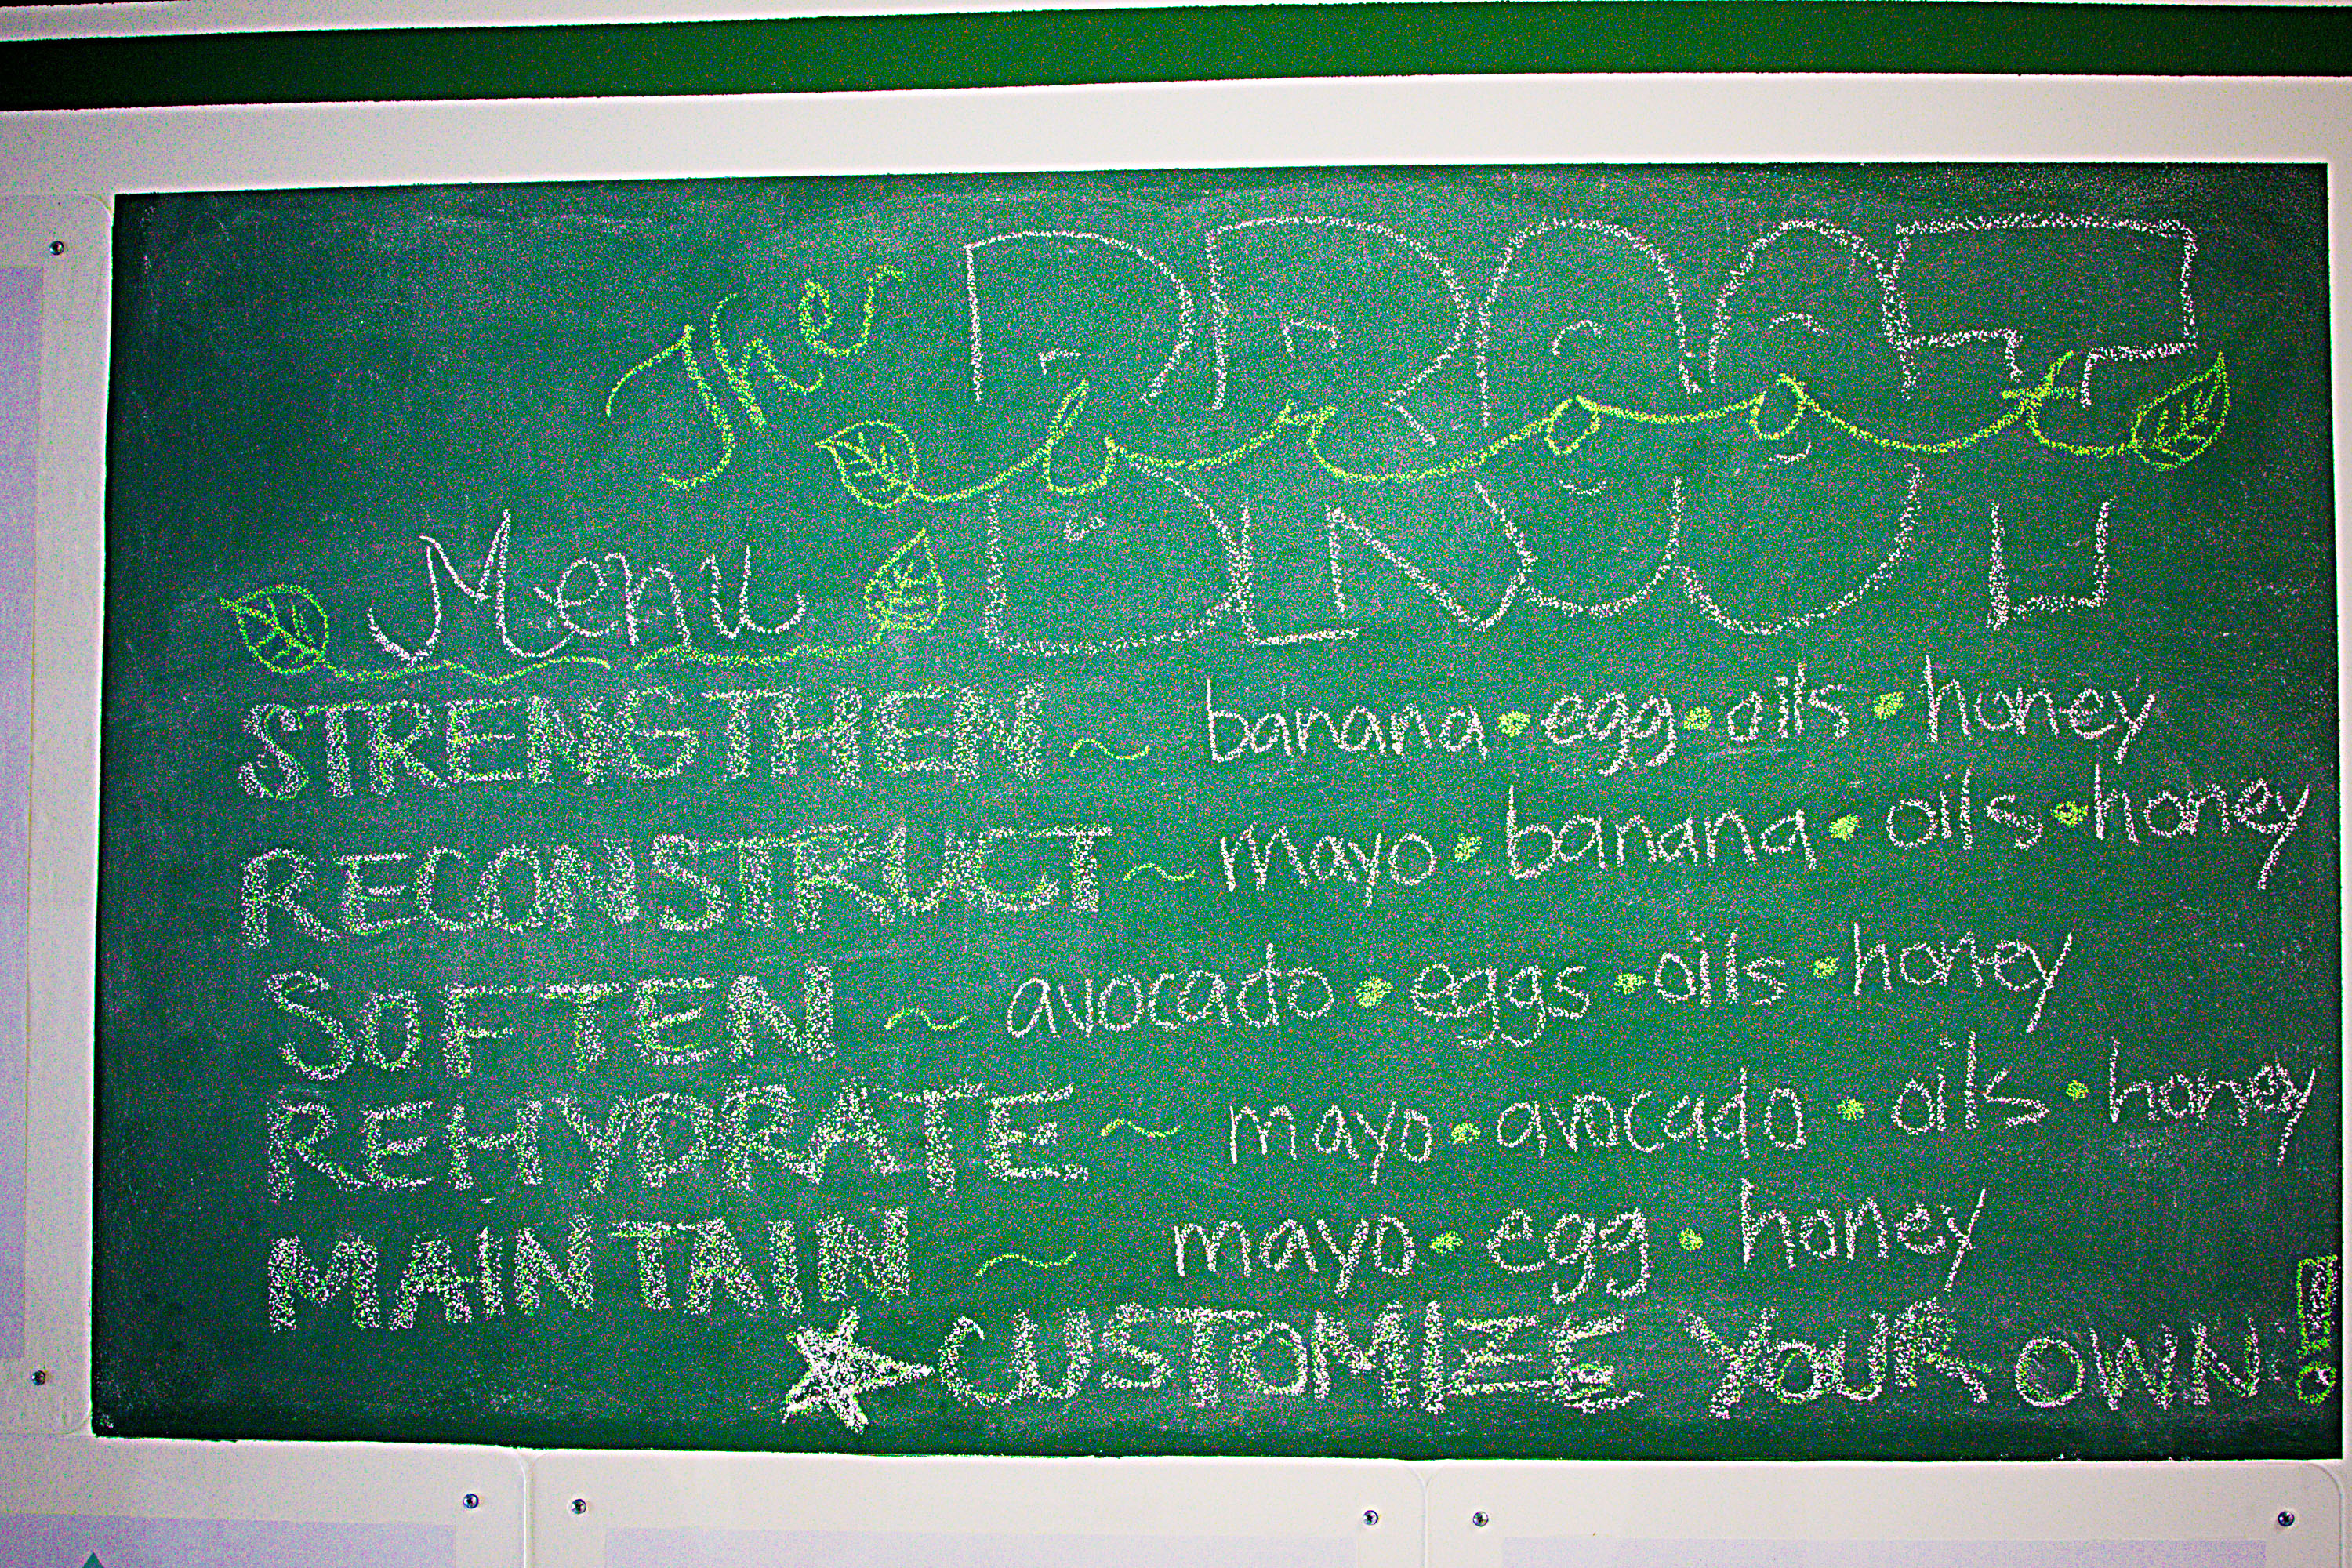 The BROOT
broot
Menu
STRENGTHEN ~ banana • egg • oils • honey
RECONSTRUCT ~ mayo • banana • oils • honey
SOFTEN ~ avocado • eggs • oils • honey
REHYDRATE ~ mayo • avocado • oils • honey
MAINTAIN ~ mayo • egg • honey
CUSTOMIZE YOUR OWN!